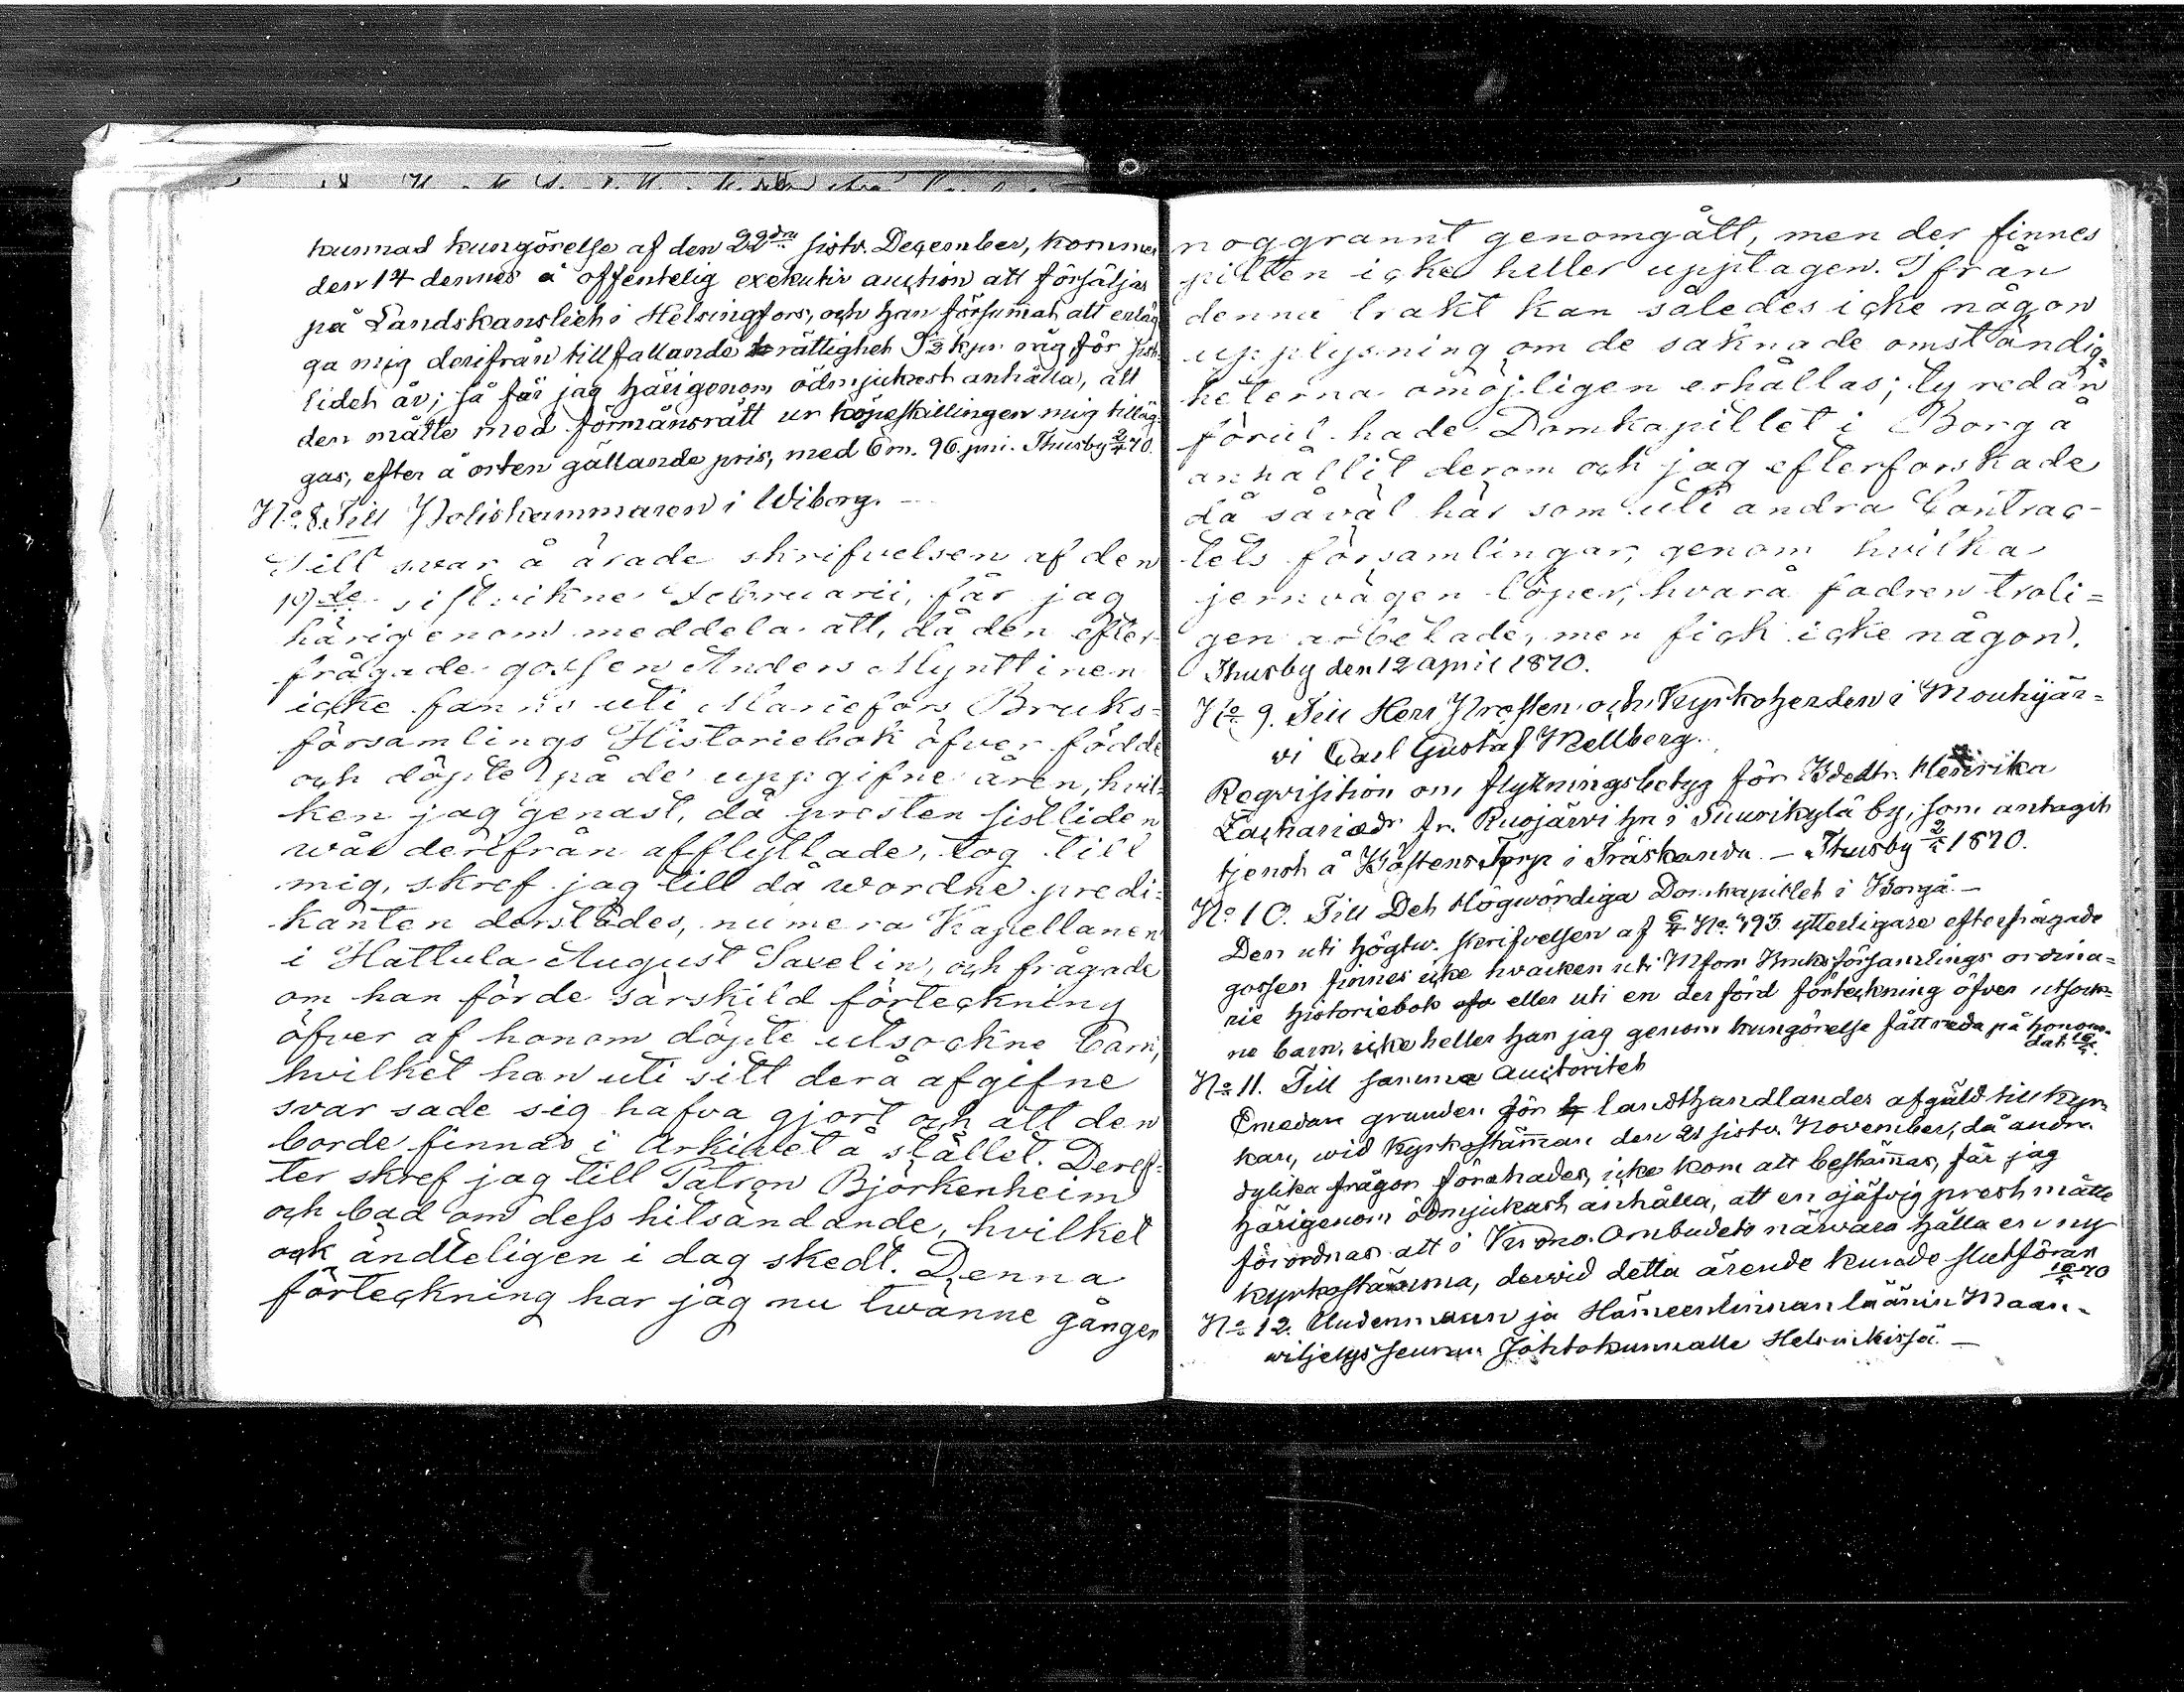 kunnad kungörelse af den 22dra sistv. December, kommer
den 14 dennes å offentelig exekutiv auction att försäljas
på Landskansliet i Helsingfors, och han försummat att erläg
ga mig derifrån tillfallande rättighet kpr. råg för sist-
lidet år; så får jag härigenom ödmjukest anhålla, att
den måtte med förmånsrätt ur köpeskillingen mig tilläg-
gas, efter å orten gällande pris, med 6 m. 96. pni. Thusby 2/4 70.
No. 8. Till Poliskammaren i Wiborg. -
Till svar å ärade skrifvelsen af den
19de sistvikne Februarii, får jag
härigenom meddela att, då den efter-
frågade gossen Anders Mynttinen
icke fanns uti Mariefors Bruks=
församlings Historiebok öfver födde
och döpte på de uppgifne åren, hvil=
ken jag genast, då presten sistliden
wår derifrån afflyttade, tog till
mig, skref jag till då wordne predi=
kanten derstädes, numera Kapellanen
i Hattula August Saxelin, och frågade
om han förde särskild förteckning
öfver af honom döpte utsockne barn,
hvilket han uti sitt derå afgifne
svar sade sig hafva gjort och att den
borde finnas i Arkivet å stället. Deref=
ter skref jag till Patron Björkenheim
och bad om dess hitsändande, hvilket
ock ändteligen i dag skedt. Denna
förteckning har jag nu twänne gånger
noggrannt genomgått, men der finnes
pilten icke heller upptagen. Ifrån
denna trakt kan således icke någon
upplysning om de saknade omständig=
heterna omöjligen erhållas; ty redan
förut hade Domkapitlet i Borgå
anhållit derom och jag efterforskade
då såväl här som uti andra Contrac-
tets församlingar, genom hvilka
jernvägen löper, hvarå fadren troli=
gen arbetade, men fick icke någon.
Thusby den 12 april 1870.
No 9. Till Herr Prosten och Kyrkoherden i Mouhijär=
vi Carl Gustaf Mellberg.
Reqvisition om flyttningsbetyg för Bdedtr. Henrika
Zachariædr fr. Ruojärvi hn i Suurikylä by, som antagit
tjenst å Torp i Träskanda. - Thusby 1870.
No. 10. Till Det Högwördiga Domkapitlet i Borgå. -
Den uti högtw. skrifvelsen af No. 493. ytterligare efterfrågade
gossen finnes icke hvarken uti Mfors Bruksförsamlings ordina=
rie historiebok eller uti en der förd förteckning öfver utsock=
ne barn, icke heller har jag genom kungörelse fått reda på honom.
dat.
No. 11. Till samma Auctoritet
Emedan grunden för landthandlandes afgäld till kyr-
kan, wid kyrkostämman den 21 sistv. November, då andra
dylika frågor förehades, icke kom att bestämmas, får jag
härigenom ödmjukast anhålla, att en ojäfvig prest måtte
förordnas att i Krono-Ombudets närwaro hålla en ny
kyrkostämma, derwid detta ärende kunde slutföras
70
No. 12. Uudenmaan ja Hämeenlinnan läänin Maan-
wiljelysseuran Johtokunnalle Helsinkissä. -